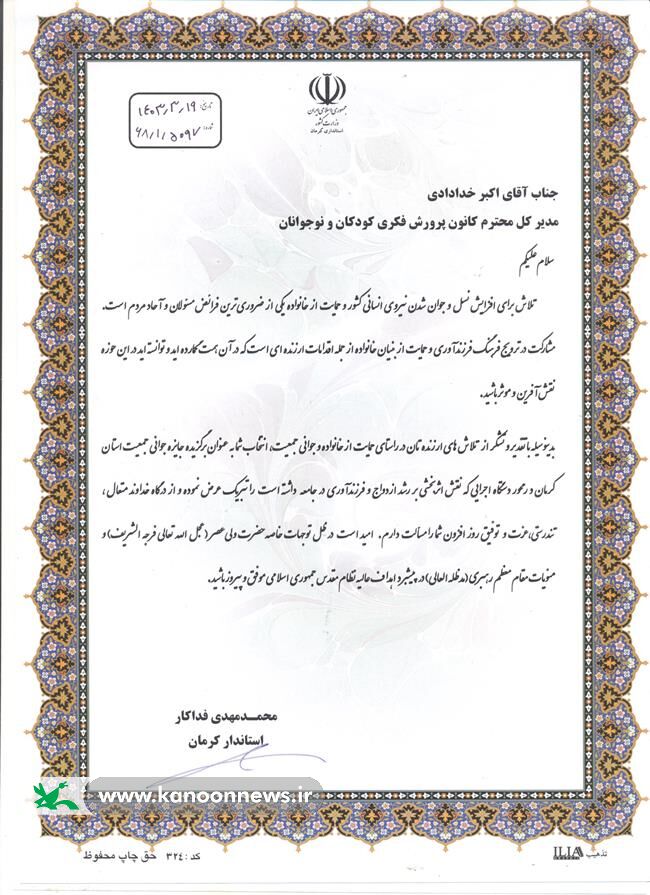 جمهوری اسلامی ایران
وزارت کشور
استانداری کرمان
تاریخ: ۱۴۰۳٫۳٫۱۹
۶۸٫۱٫۵۰۹۷
جناب آقای اکبر خدادادی
مدیر کل محترم کانون پرورش فکری کودکان و نوجوانان
سلام علیکم
تلاش برای افزایش نسل و جوان شدن نیروی انسانی کشور و حمایت از خانواده یکی از ضروری ترین فرائض مسئولان و آحاد مردم است.
مشارکت در ترویج فرهنگ فرزندآوری و حمایت از بنیان خانواده از جمله اقدامات ارزنده ای است که در آن همت گمارده اید و توانسته اید در این حوزه
نقش آفرین و موثر باشید.
بدینوسیله با تقدیر و تشکر از تلاش های ارزنده تان در راستای حمایت از خانواده و جوانی جمعیت، انتخاب شما به عنوان برگزیده جایزه جوانی جمعیت استان
کرمان در محور دستگاه اجرایی که نقش اثربخشی بر رشد ازدواج و فرزندآوری در جامعه داشته است را تبریک عرض نموده و از درگاه خداوند متعال ،
تندرستی، عزت و توفیق روز افزون شما را مسألت دارم. امید است در ظل توجهات خاصه حضرت ولی عصر (عجل الله تعالی فرجه الشریف) و
منویات مقام معظم رهبری (مدظله العالی) در پیشبرد اهداف عالیه نظام مقدس جمهوری اسلامی موفق و پیروز باشید.
محمدمهدی فداکار
استاندار کرمان
www.kanoonnews.ir
تذهیب ILIA
کد : ۳۲۴ حق چاپ محفوظ